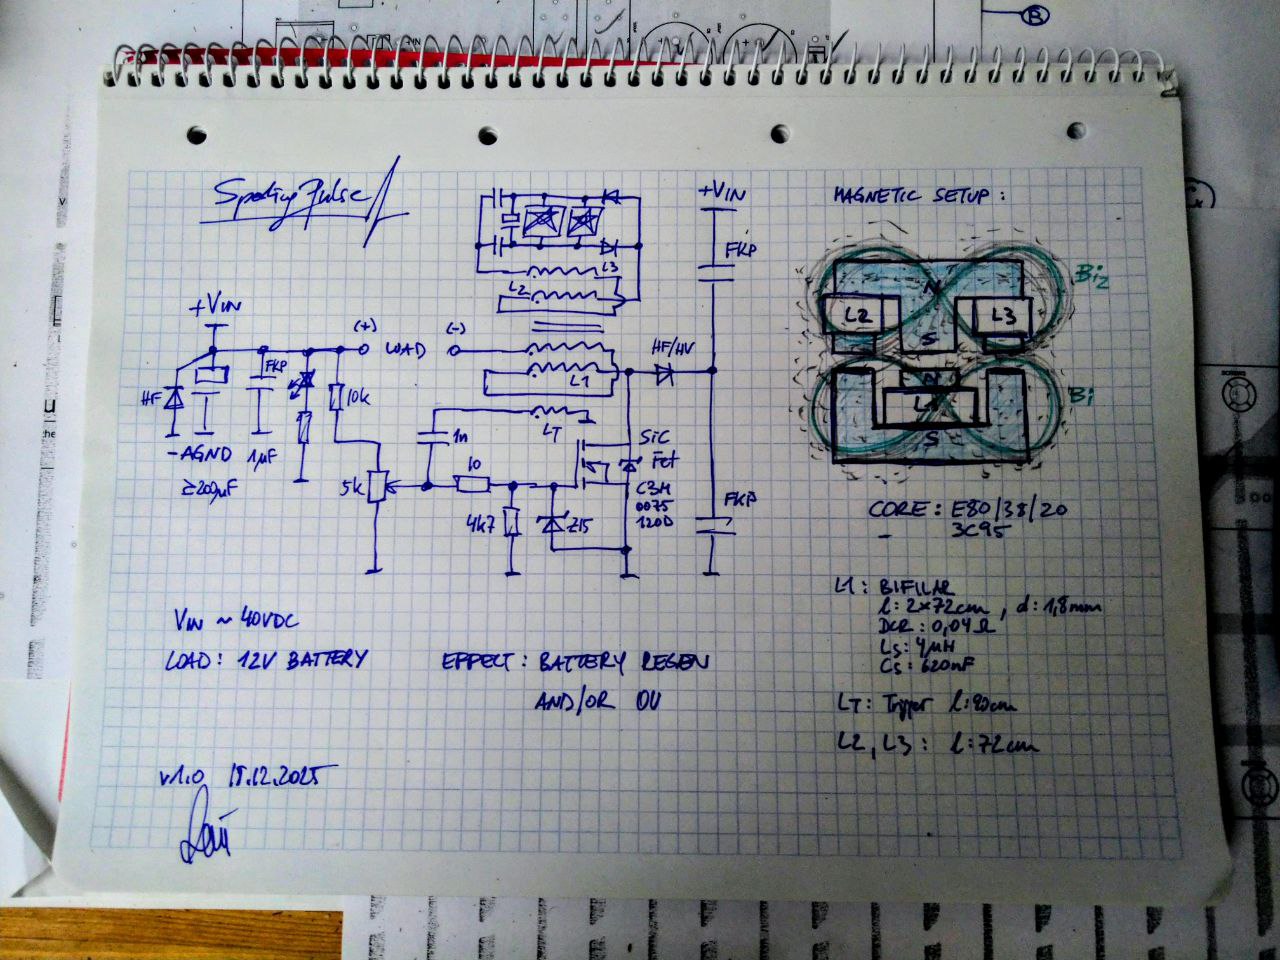 +VIN
MAGNETIC SETUP:
FKP
L3
L2
Bi2
N
L2
L3
S
+VIN
(+)
LOAD
(-)
HF/HV
L1
FKP
HF
10k
LT
N
L1
Bi
S
-AGND
1µF
≥200µF
1n
10
5k
4k7
Z15
SiC
Fet
C3M
0075
120D
FKP
CORE: E80/38/20
3C95
L1: BIFILAR
l: 2×72cm, d: 1,8mm
DCR: 0,04Ω
Ls: 4µH
Cs: 620nF
VIN ~ 40VDC
LOAD: 12V BATTERY
EFFECT: BATTERY REGEN
AND/OR OU
LT: Trigger l:
L2, L3: l: 72cm
v1.0 15.12.2025
B